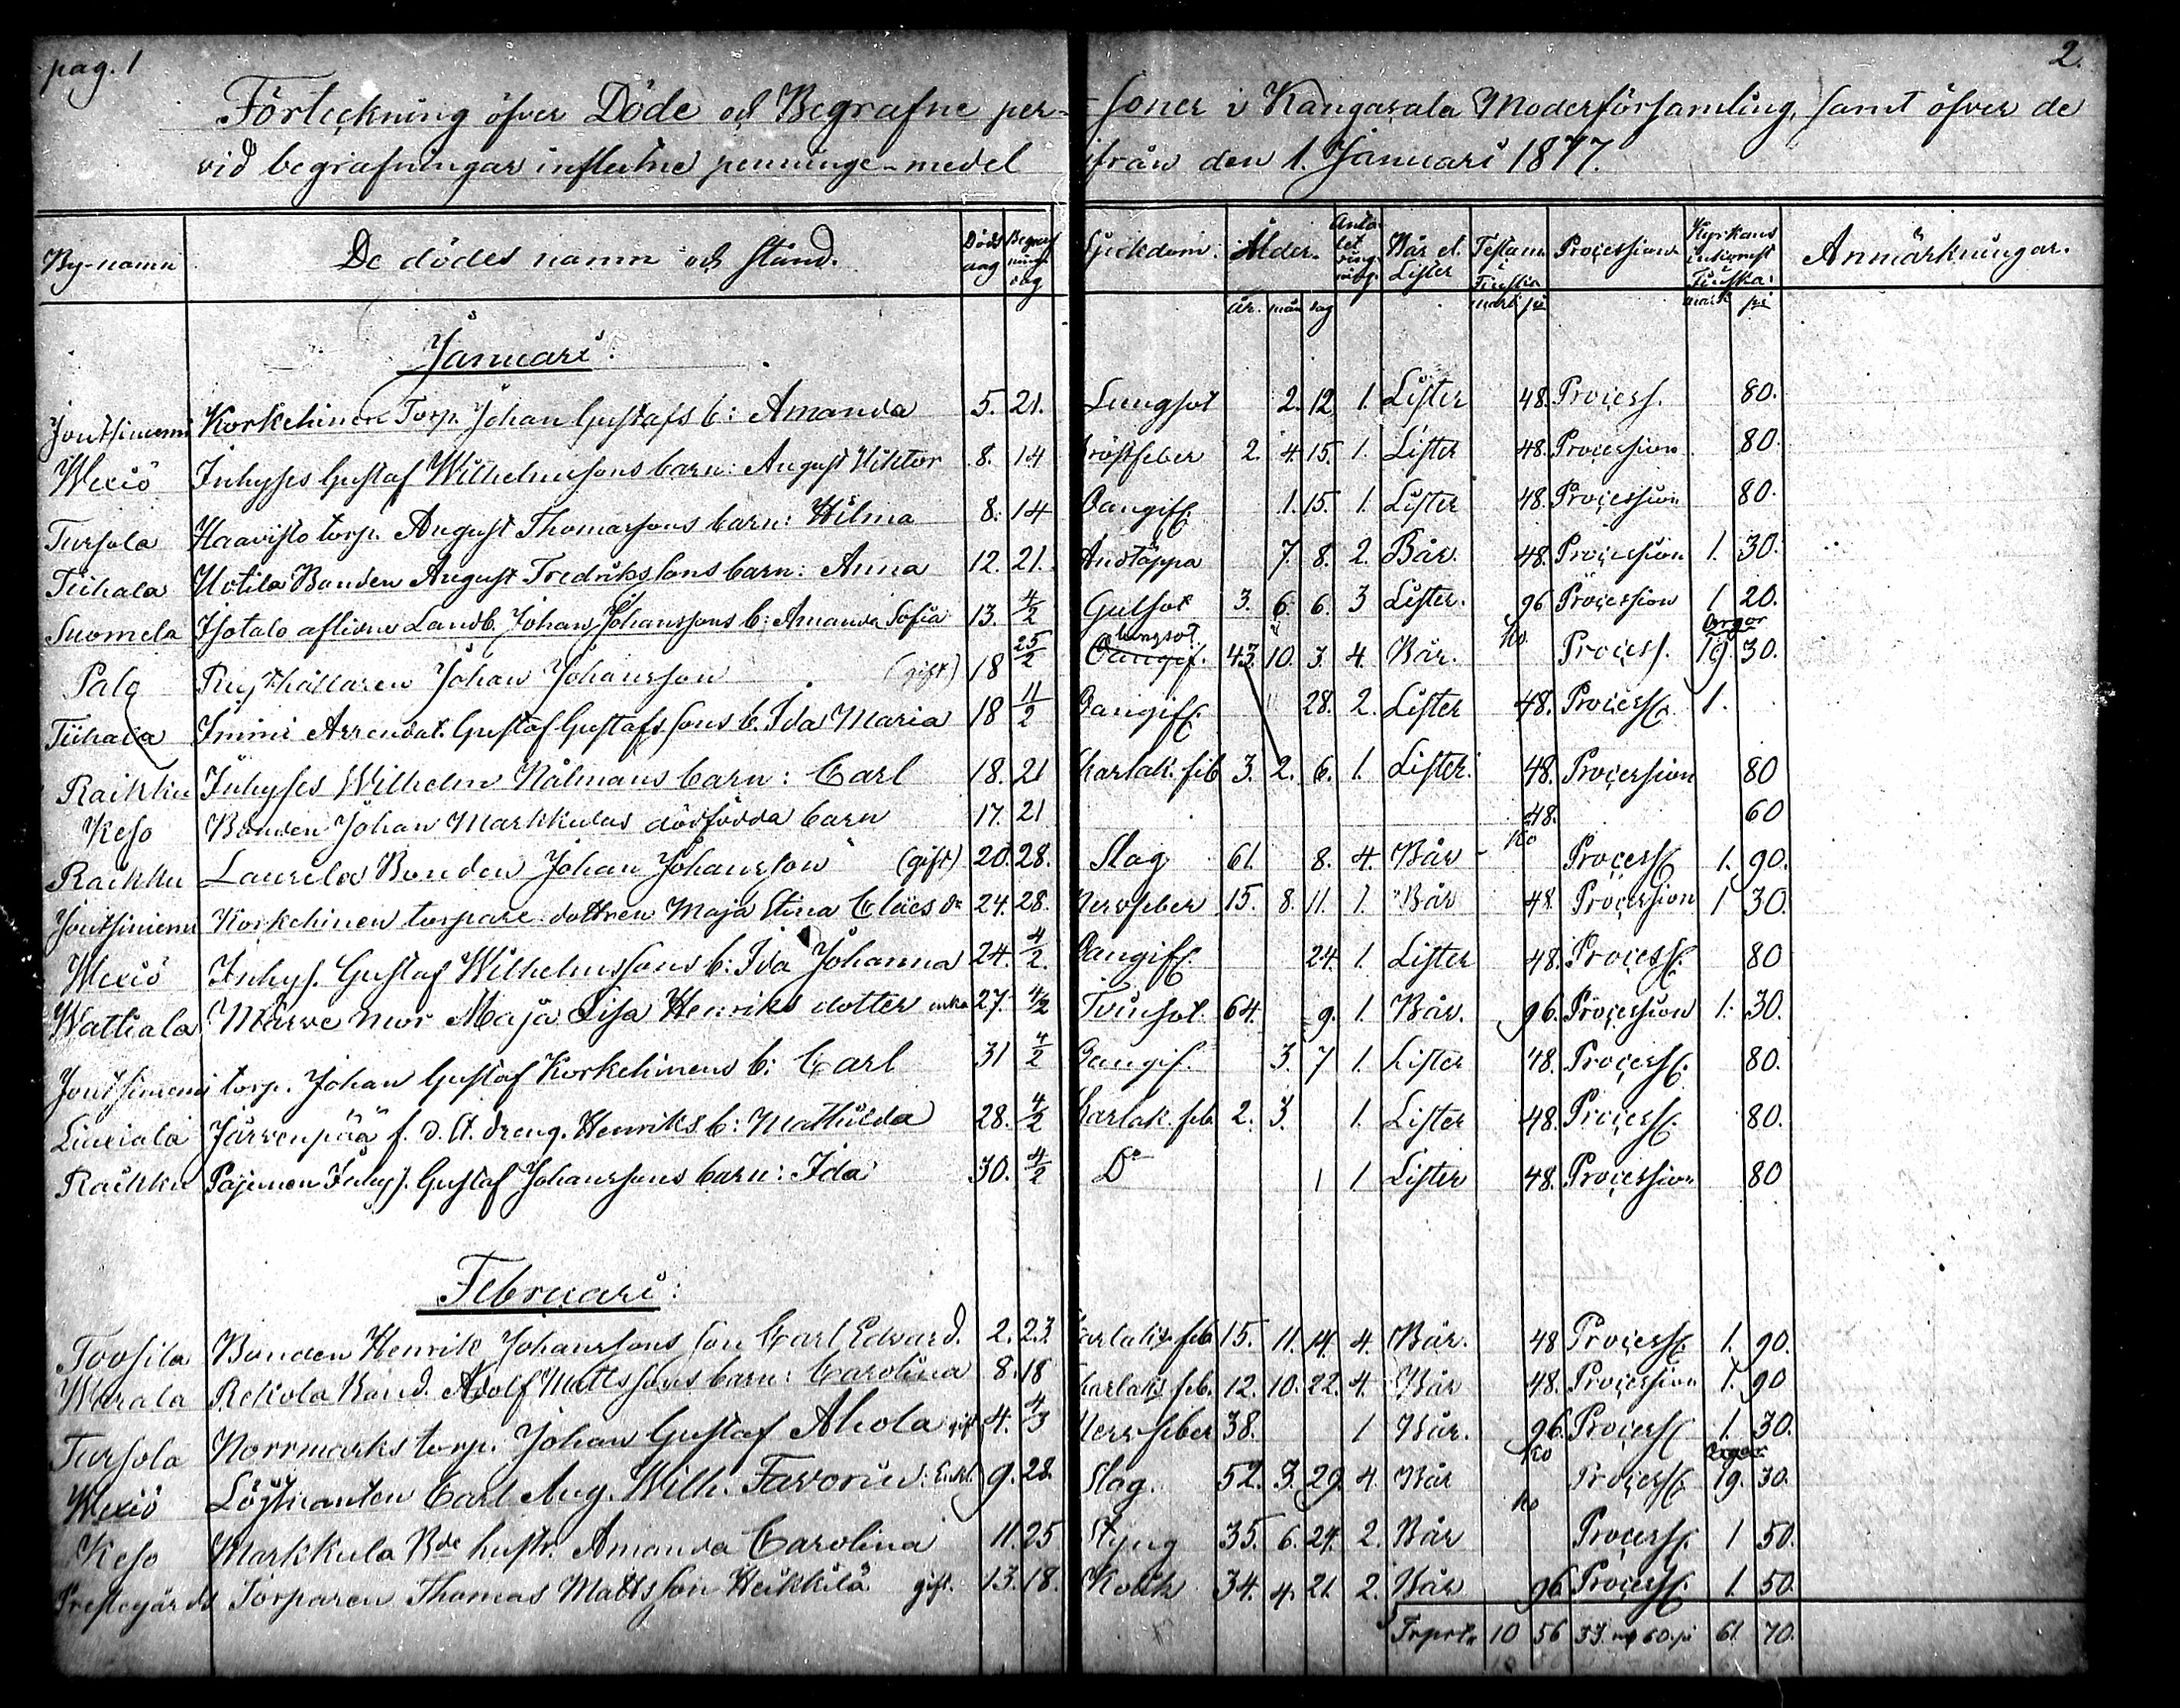 pag. 1
2.
Förteckning öfver Döde och Begrafne per- soner i Kangasala Moderförsamling, samt öfver de
vid begrafningar influtne penninge-medel ifrån den 1. Januari 1877.
By-namn De dödes namn och stånd. Döds dag Begraf nings dag Sjuckdom. Ålder. Anta- let ring- ning. Bår el. Lister Testam. Finska mark pi Procession Kyrkans inkomst Finska mark pi Anmärkningar.
år. mån dag
Januari:
Jontsiniemi Korkehinen Torp. Johan Gustafs b: Amanda 5. 21. Lungsot 2. 12. 1. Lister 48. Process. 80.
Wexiö Inhyses Gustaf Wilhelmssons barn: August Wiktor 8. 14 Bröstfeber 2. 4. 15. 1. Lister 48. Procession 80.
Tursola Haavisto torp. August Thomassons barn: Hilma 8. 14 Oangiff. 1. 15. 1. Lister 48. Procession 80.
Tiihala Uotila Bonden August Fredrikssons barn: Anna 12. 21. Andtäppa 7. 8. 2. Bår. 48. Procession 1. 30.
Suomela Isotalo aflidne Landb. Johan Johanssons b: Amanda Sofia 13. 4/2 Gulsot 3. 6. 6. 3 Lister. 96 Procession 1 20.
Palo Rusthållaren Johan Johansson (gift) 18 25/2 Oangif. lungsot 43. 10. 3. 4. Bår. Ko Process. Orgor 19. 30.
Tiihala Immi Arrendat. Gustaf Gustafssons b. Ida Maria 18 11/2 Oangiff. 28. 2. Lister 48. Process. 1.
Raikku Inhyses Wilhelm Nålmans barn: Carl 18. 21 Skarlak. feb 3. 2. 6. 1. Lister. 48. Procession 80
Keso Bonden Johan Markkulas dödfödda barn 17. 21 48. 60
Raikku Laurila Bonden Johan Johansson (gift) 20. 28. Slag 61. 8. 4. Bår Ko Process. 1. 90.
Jontsiniemi Korkehinen torpare dottren Maja Stina Claes dr 24. 28. Nervfeber 15. 8. 11. 1. Bår 48 Procession 1 30.
Wexiö Inhys. Gustaf Wilhelmssons b: Ida Johanna 24. 4/2. Oangiff. 24. 1. Lister 48. Process. 80
Wattiala Mor Maja Lisa Henriks dotter enka 27. 4/2 Tvinsot. 64. 9. 1. Bår. 96. Procession 1. 30.
Jontsiniemi torp. Johan Gustaf Korkehinens b: Carl 31 4/2 Oangif. 3. 7 1. Lister 48. Process. 80.
Liuxiala Järvenpää f. d. St. dreng. Henriks b: Mathilda 28. 4/2 Skarlak. feb 2. 3. 1. Lister 48. Process. 80.
Raikku Pajunen Inhys. Gustaf Johanssons barn: Ida 30. 4/2 Do 1 1. Lister 48. Procession 80
Februari:
Toosila Bonden Henrik Johanssons son Carl Edward. 2. 23. Skarlaks feb 15. 11. 14. 4. Bår. 48 Process. 1. 90.
Wurala Rekola Bond. Adolf Mattssons barn: Carolina 8. 18 Skarlaks feb. 12. 10. 22. 4. Bår 48. Procession 1. 90
Tursola Norrmarks torp. Johan Gustaf Ahola gift 4. 4/3 Nervfeber 38. 1 Bår. 96. Process. 1. 30.
Wexiö Löjtnanten Carl Aug. Wilh. Favorin: Enkl. 9. 28. Slag. 52. 3. 29. 4. Bår Ko Process. Orgor 19. 30.
Keso Markkula Bde hustr. Amanda Carolina 11. 25 Styng 35. 6. 24. 2. Bår Ko Process. 1 50.
Prestegårds Torparen Thomas Mattsson Heikkilä gift. 13. 18. Kolik 34. 4. 21. 2. Bår 96 Process. 1. 50.
Trprt. 10 56 33 60 pi 61. 70.